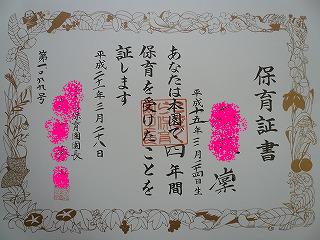 保育証書
凛
平成十五年三月二十四日生
あなたは本園で四年間
保育を受けたことを
証します
平成二十一年三月二十八日
保育園園長